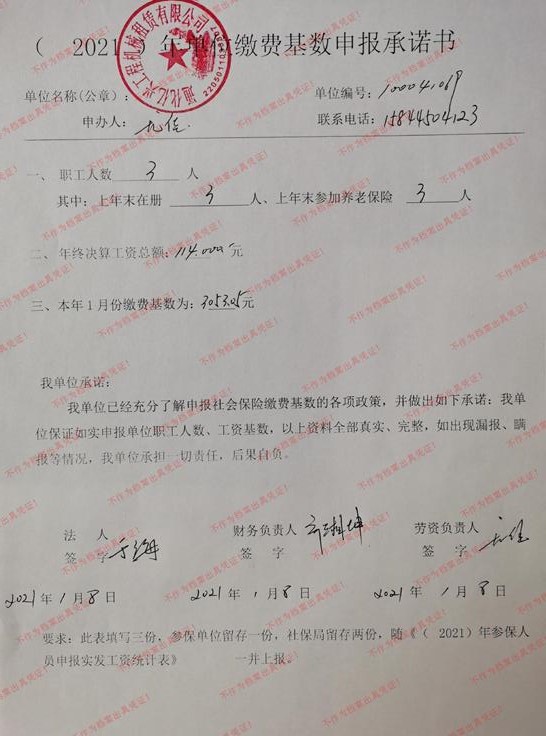 （ 2021 ）年单位缴费基数申报承诺书
通化亿兴工程机械租赁有限公司
单位名称(公章)： 单位编号：100041069
申办人： 联系电话：15844504123
一、 职工人数 3 人
其中：上年末在册 3 人、上年末参加养老保险 3 人
二、年终决算工资总额：114.000 元
三、本年1月份缴费基数为：3053.05元
我单位承诺：
我单位已经充分了解申报社会保险缴费基数的各项政策，并做出如下承诺：我单
位保证如实申报单位职工人数、工资基数，以上资料全部真实、完整，如出现漏报、瞒
报等情况，我单位承担一切责任，后果自负。
法 人 财务负责人 劳资负责人
签 字 签 字 签 字
2021年 1月8日 2021年 1月8日 2021年 1月8日
要求：此表填写三份，参保单位留存一份，社保局留存两份，随《（ 2021）年参保人
员申报实发工资统计表》 一并上报。
不作为档案出具凭证！